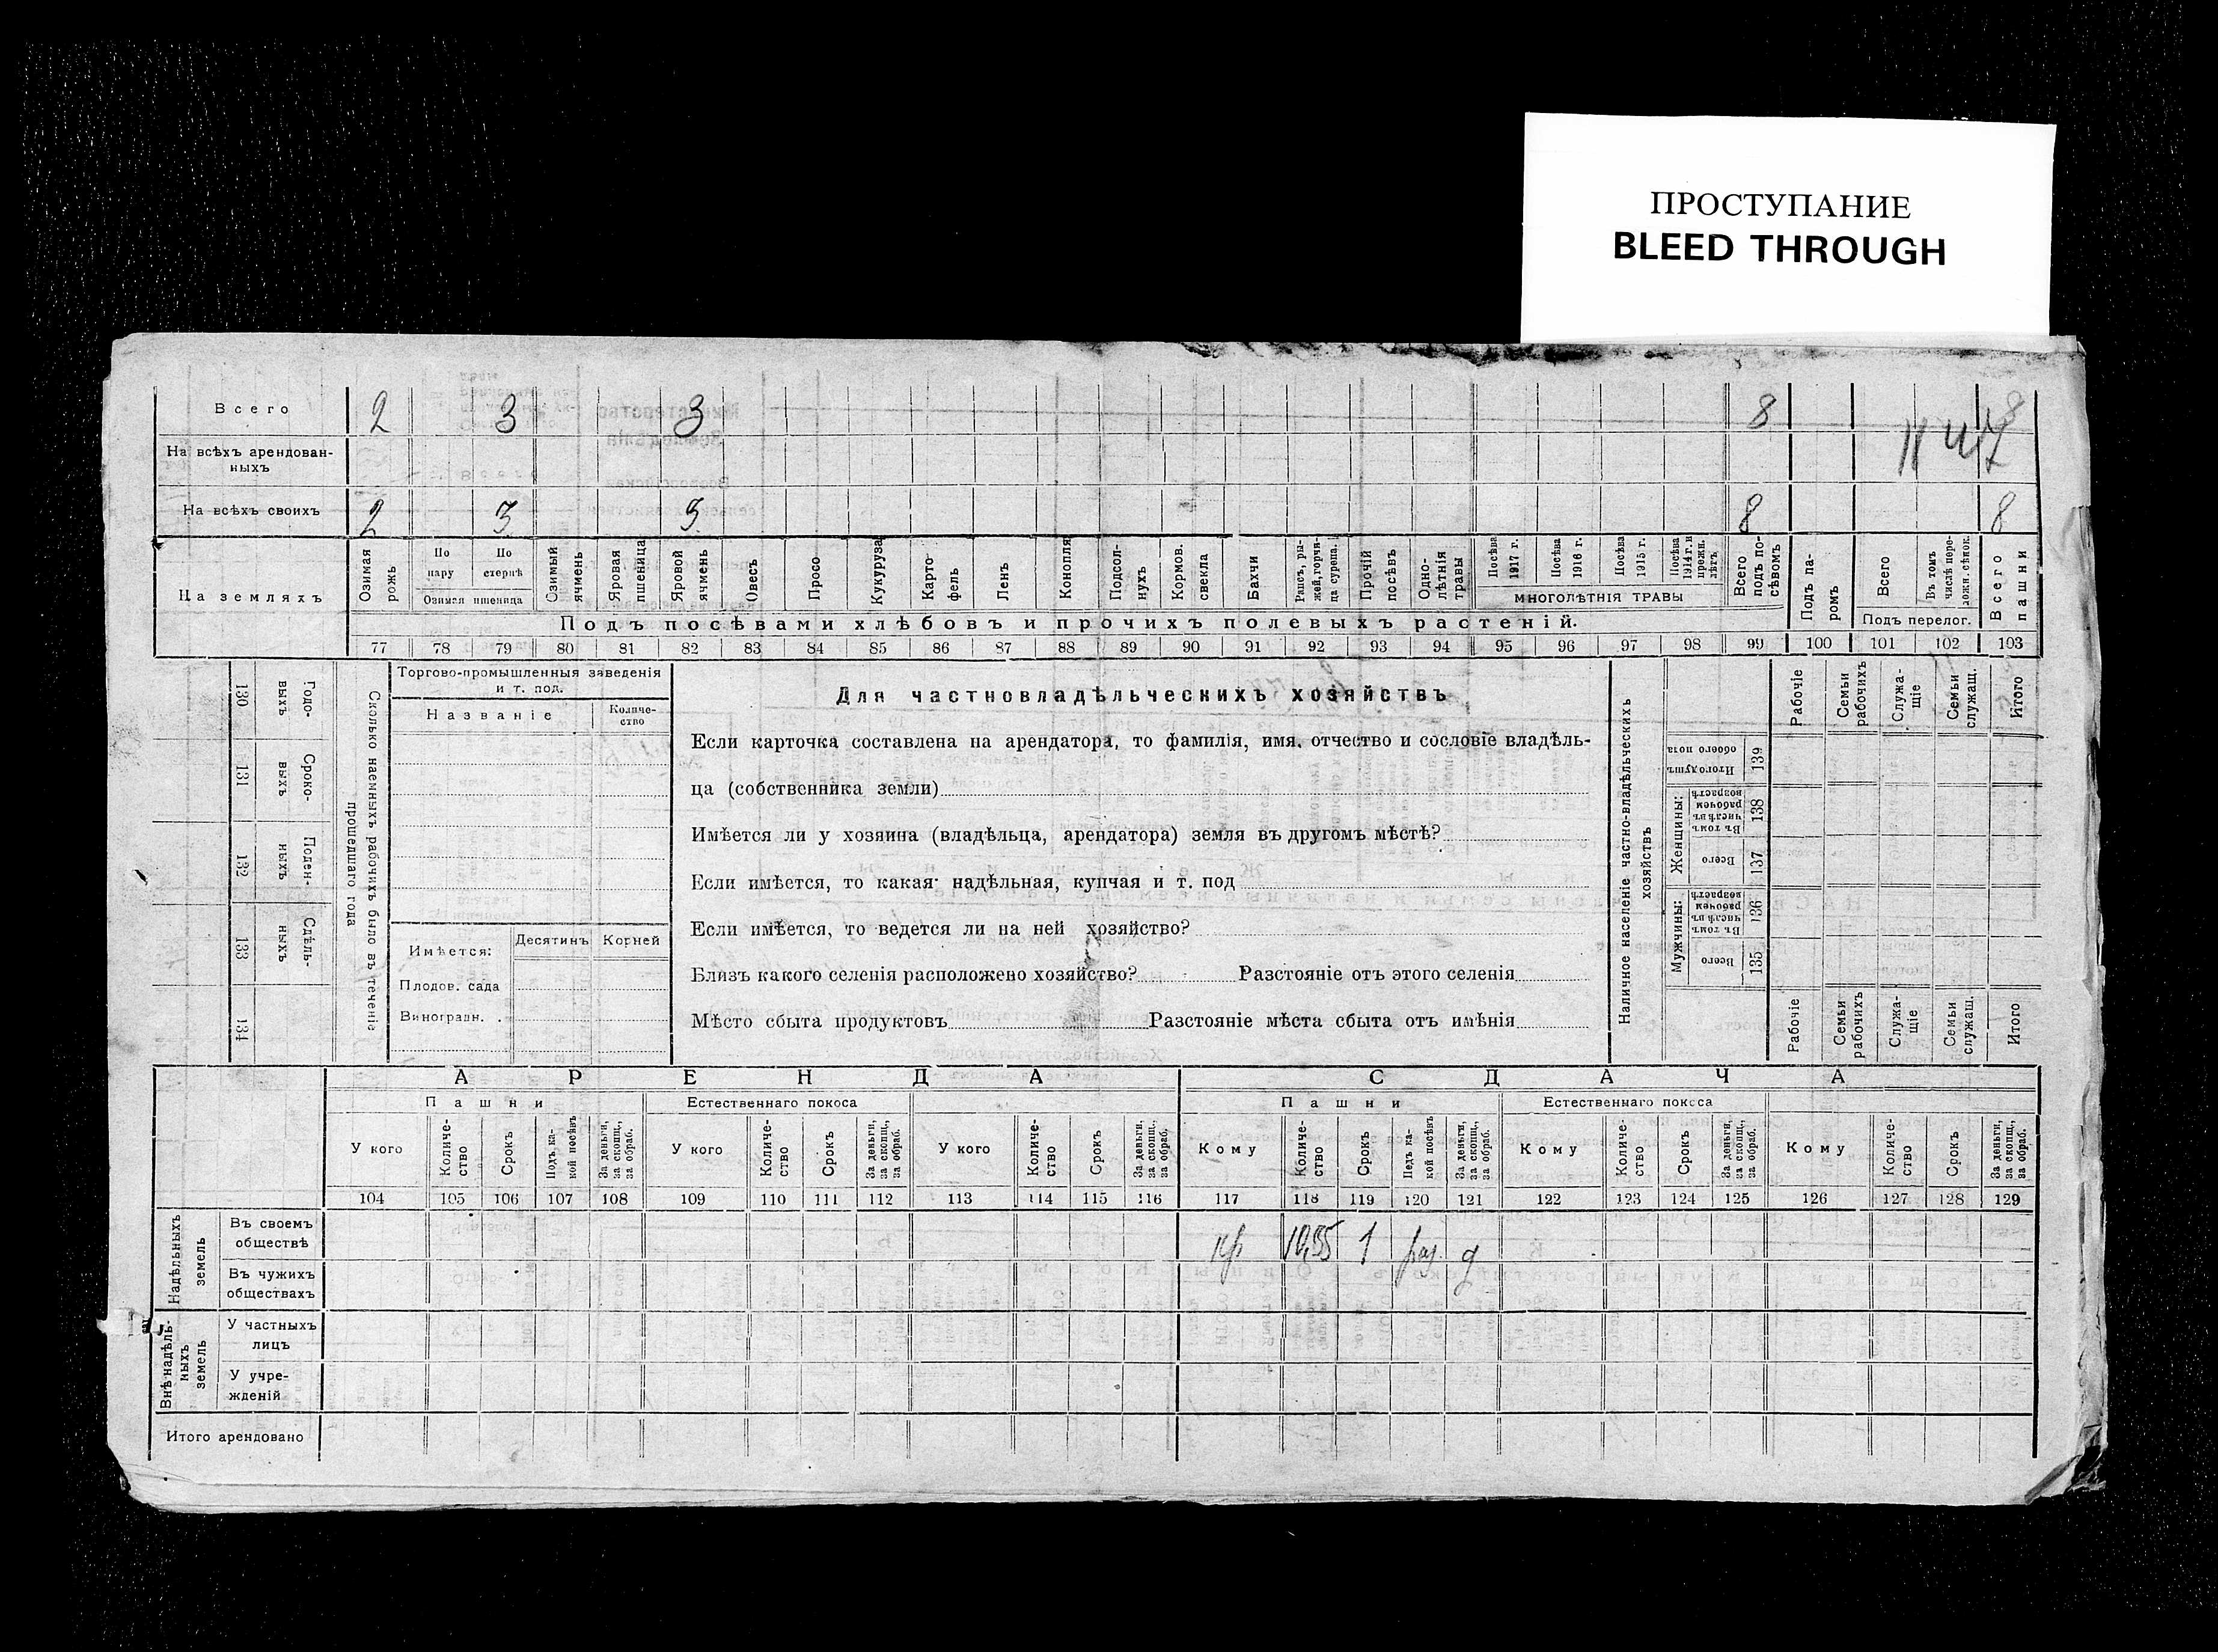 ПРОСТУПАНИЕ
BLEED THROUGH
Всего 2 3 3 8 8
На всѣхъ арендован-
ныхъ
На всѣхъ своихъ 2 3 8 8
На земляхъ
Озимая рожь
По пару
По стернѣ
Озимая пшеница
Озимый ячмень
Яровая пшеница
Яровой ячмень
Овесъ
Просо
Кукуруза
Карто-
фель
Ленъ
Конопля
Подсол-
нухъ
Кормов. свекла
Бахчи
Рапсъ, ры-
жей, горчи-
ца сурепа.
Прочій посѣвъ
Одно-
лѣтнія травы
Посѣва 1917 г.
Посѣва 1916 г.
Посѣва 1915 г.
Посѣва 1914 г. и прежн. лѣтъ
МНОГОЛѢТНІЯ ТРАВЫ
Всего подъ по-
сѣвомъ
Подъ па-
ромъ
Всего
Въ томъ числѣ пере-
ложн. сѣнок.
Подъ перелог.
Всего пашни
Подъ посѣвами хлѣбовъ и прочихъ полевыхъ растеній.
77 78 79 80 81 82 83 84 85 86 87 88 89 90 91 92 93 94 95 96 97 98 99 100 101 102 103
Годо-
выхъ
130
Сроко-
выхъ
131
Поден-
ныхъ
132
Сдѣль-
ныхъ
133
134
Сколько наемныхъ рабочихъ было въ теченіе
прошедшаго года
Торгово-промышленныя заведенія
и т. под.
Названіе
Количе-
ство
Имѣется:
Десятинъ
Корней
Плодов. сада
Виноградн.
Для частновладѣльческихъ хозяйствъ
Если карточка составлена на арендатора, то фамилія, имя, отчество и сословіе владѣль-
ца (собственника земли)
Имѣется ли у хозяина (владѣльца, арендатора) земля въ другомъ мѣстѣ?
Если имѣется, то какая: надѣльная, купчая и т. под
Если имѣется, то ведется ли на ней хозяйство?
Близъ какого селенія расположено хозяйство? Разстояніе отъ этого селенія
Мѣсто сбыта продуктовъ Разстояніе мѣста сбыта отъ имѣнія
Наличное населеніе частно-владѣльческихъ
хозяйствъ
Итого душъ обоего пола
139
Женщины:
Въ томъ числѣ въ рабочемъ возрастѣ
138
Всего
137
Мужчины:
Въ томъ числѣ въ рабочемъ возрастѣ
136
Всего
135
Рабочіе
Семьи рабочихъ
Служа-
щіе
Семьи служащ.
Итого
Рабочіе
Семьи рабочихъ
Служа-
щіе
Семьи служащ.
Итого
АРЕНДА
СДАЧА
Пашни
Естественнаго покоса
Пашни
Естественнаго покоса
У кого
Количе-
ство
Срокъ
Подъ ка-
кой посѣвъ
За деньги, за скопщ., за обраб.
У кого
Количе-
ство
Срокъ
За деньги, за скопщ., за обраб.
У кого
Количе-
ство
Срокъ
За деньги, за скопщ., за обраб.
Кому
Количе-
ство
Срокъ
Подъ ка-
кой посѣвъ
За деньги, за скопщ., за обраб.
Кому
Количе-
ство
Срокъ
За деньги, за скопщ., за обраб.
Кому
Количе-
ство
Срокъ
За деньги, за скопщ., за обраб.
104 105 106 107 108 109 110 111 112 113 114 115 116 117 118 119 120 121 122 123 124 125 126 127 128 129
Надѣльныхъ
земель
Въ своемъ
обществѣ
кр 10,55 1 раз. д
Въ чужихъ
обществахъ
Внѣнадѣль-
ныхъ
земель
У частныхъ
лицъ
У учре-
жденій
Итого арендовано